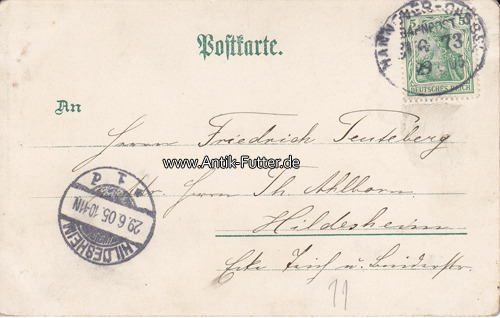 Postkarte.
HANNOVER
BAHNPOST
ZUG 73
29
5 5
DEUTSCHES REICH
An
Herrn Friedrich Teuteberg
www.Antik-Futter.de
Adr. Herrn Th. Ahlborn
Hildesheim
Ecke Teich u. Braiderstr.
HILDESHEIM
29.6.05.10-11N.
* 1 d
11